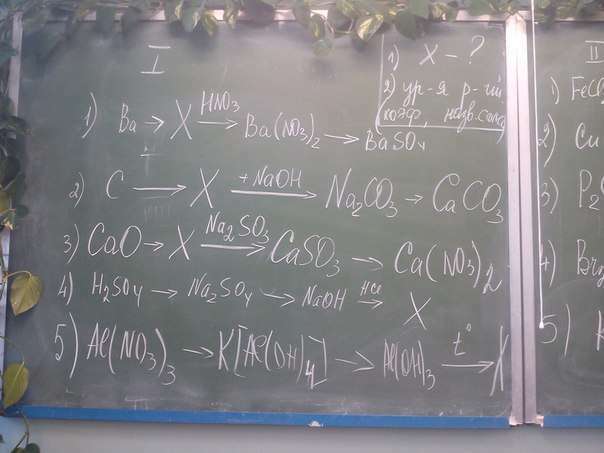 I
1) X - ?
2) ур-я р-ий
коэф, назв. солей
1) Ba → X HNO3→ Ba(NO3)2 → BaSO4
2) C → X +NaOH→ Na2CO3 → CaCO3
3) CaO → X Na2SO3→ CaSO3 → Ca(NO3)2
4) H2SO4 → Na2SO4 → NaOH HCl→ X
5) Al(NO3)3 → K[Al(OH)4] → Al(OH)3 t°→ X
II
1) FeC
2) Cu
3) P2
4) Br2
5) K